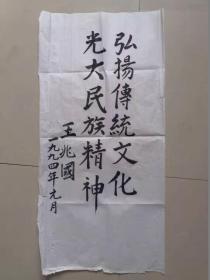 弘揚傳統文化
光大民族精神
王兆國
一九九四年元月